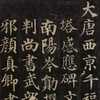 大唐西京千福
塔感應碑文
南陽岑勛
判尚書武
邪顏真卿